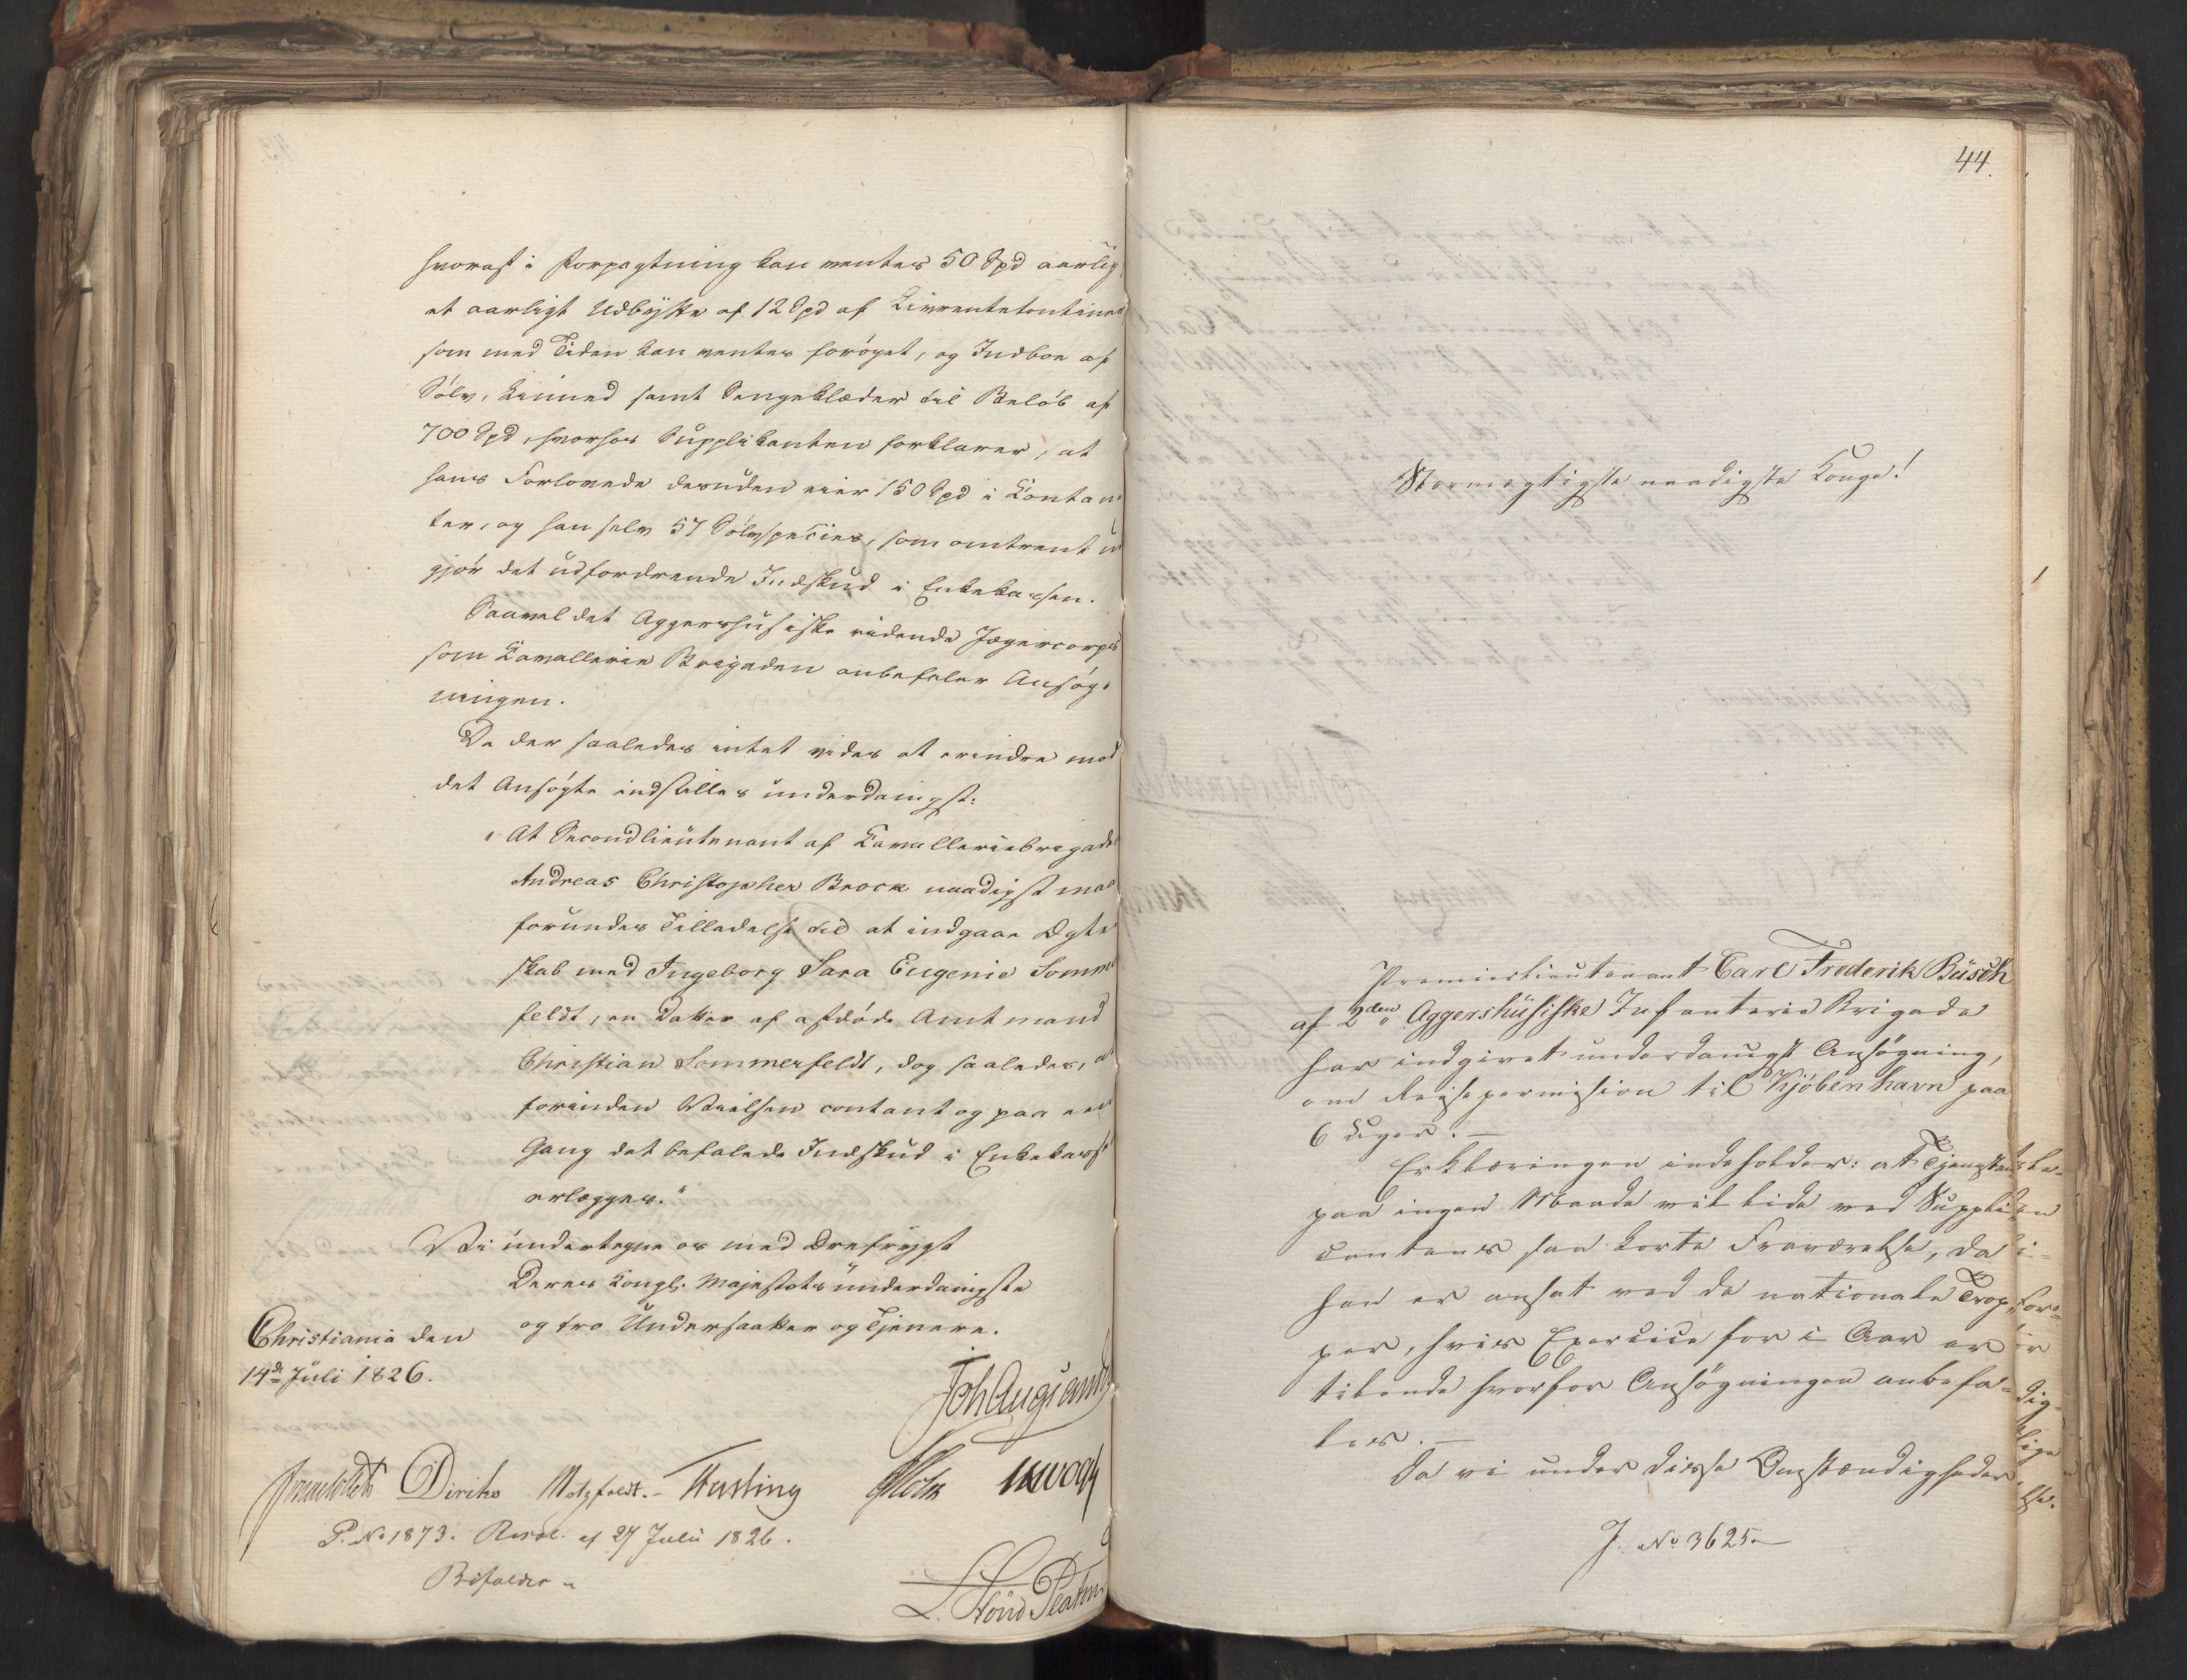 hvoraf i Forpagtning kan ventes 50 Spd aarlig
et aarligt Udbytte af 12 Spd af Livrentetontinen
som med Tiden kan ventes forøget, og Indboe af
Sølv, Linned samt Sengeklæder til Beløb af
700 Spd, hvorhos Supplikanten forklarer, at
hans Forlovede desuden eier 150 Spd i Contan-
ter, og han selv 57 Sølvspecies, som omtrent u
gjør det udfordrende Indskud i Enkekassen.
Saavel det Aggershusiske ridende Jægercorps
som Kavallerie Brigaden anbefaler Ansøg-
ningen.
Da der saaledes intet vides at erindre mod
det Ansøgte indstilles underdanigst:
"At Secondlieutenant af Kavalleriebrigade
Andreas Christopher Brock naadigst maa
forundes Tilladelse til at indgaae Ægte
skab med Ingeborg Sara Eugenie Somme
feldt, en Datter af afdøde Amtmand
Christian Sommerfeldt, dog saaledes, a
forinden Vielsen contant og paa een
Gang det befalede Indskud i Enkekasse
erlægges."
Vi undertegne os med Ærefrygt
Deres Kongl. Majestæts underdanigste
og tro Undersaatter og Tjenere.
Christiania den
14de Juli 1826.
Joh Aug Sand
Diriks Motzfeldt. Fasting Holst
P. No 1873. Resol. af 27 Julii 1826.
Bifaldes
L. Stoud Platou
44.
Stormægtigste naadigste Konge!
Premierlieutenant Carl Frederik Büsch
af 2den Aggershusiske Infanterie Brigade
har indgivet underdanigst Ansøgning,
om Reisepermission til Kjøbenhavn paa
6 Uger. —
Erklæringen indeholder: at Tjenesten
paa ingen Maade vil lide ved Suppli-
cantens saa korte Fraværelse, da
han er ansat ved de nationale Trop-
per, hvis Exercice for i Aar er
tilende hvorfor Ansøgningen anbefa-
les. —
Da vi under disse Omstændigheder
J. No 3625